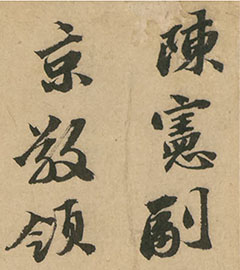 陳憲副
京敬領